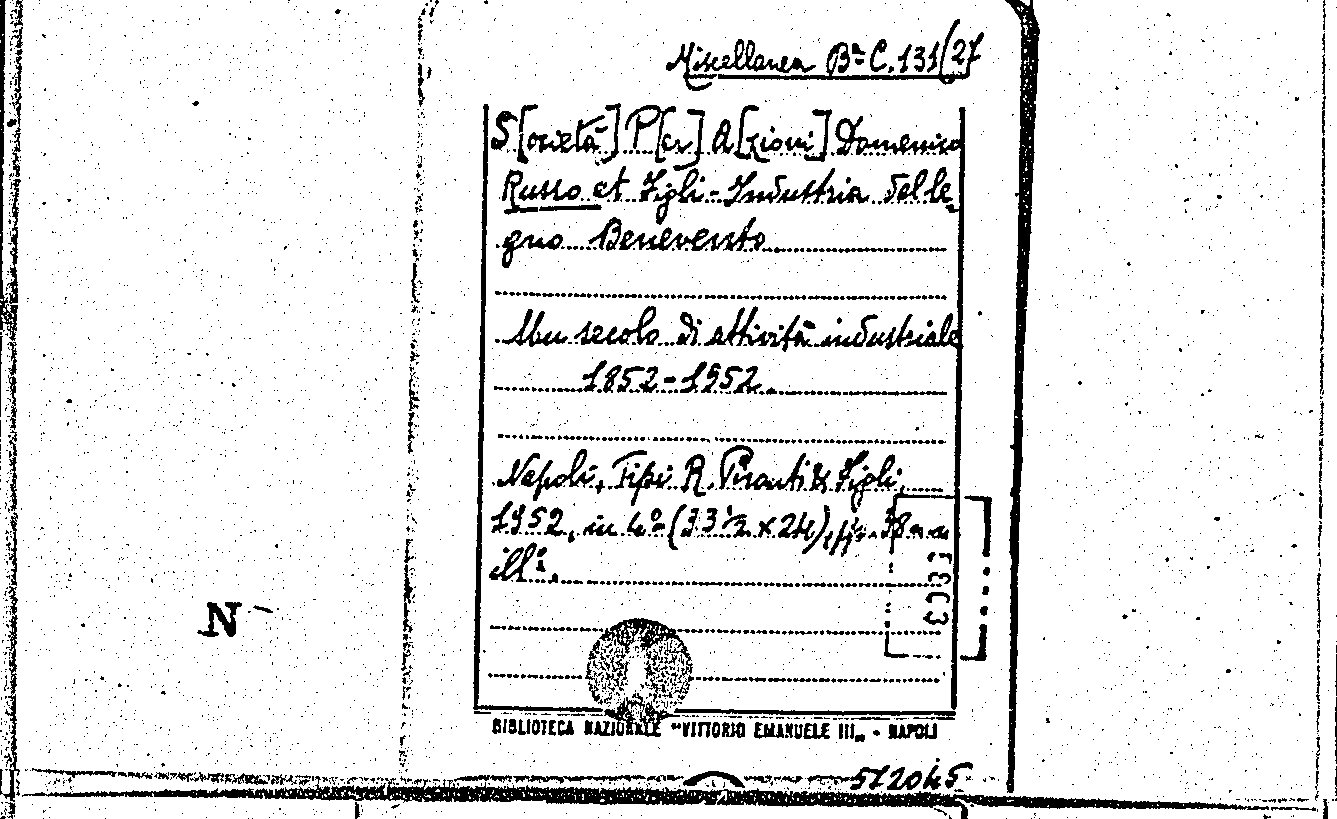 Miscellanea Ba C. 131(27
S[ocietà] P[er] A[zioni] Domenico
Russo et Figli - Industria del le-
gno Benevento
Un secolo di attività industriale
1852-1952.
Napoli, Tipi R. Pironti & Figli,
1952, in 4º (33½ x 24), pp. 38
ill.
N
BIBLIOTECA NAZIONALE "VITTORIO EMANUELE III„ - NAPOLI
572045